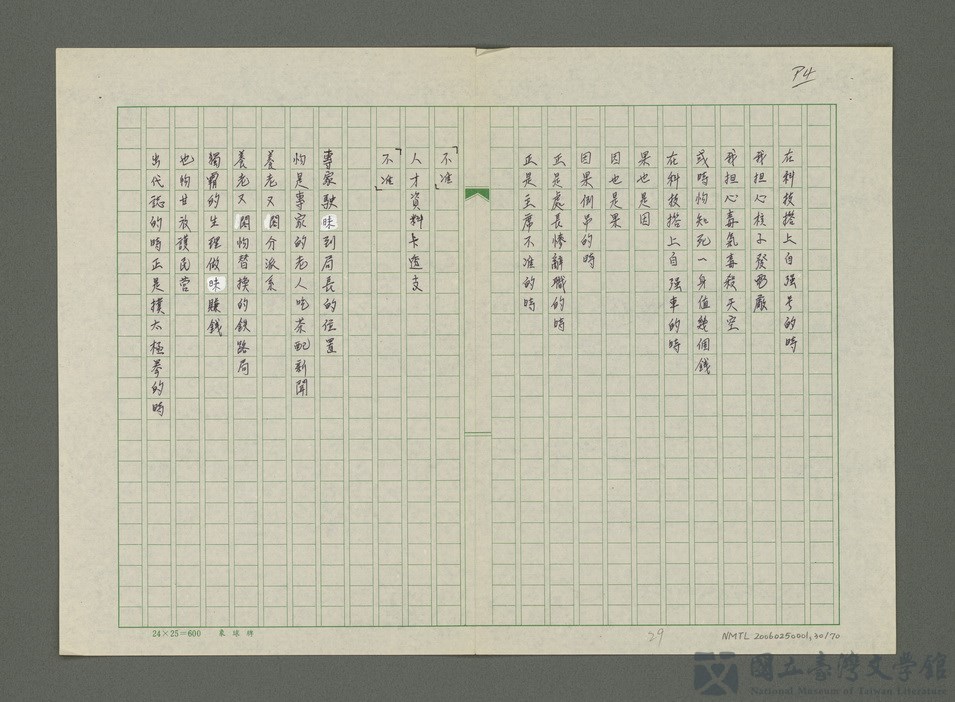 P4
在科技搭上自强号的時
我担心核子發彭廠
我担心毒氣毒殺天空
或時怐知死一身值幾個錢
在科技搭上自强車的時
果也是因
因也是果
因果倒吊的時
正是處長慘辭職的時
正是主席不准的時
「不准」
人才資料卡透支
「不准」
專家駛昧到局長的位置
怐是專家的老人吃茶配新聞
養老又閣分派系
養老又閣怐替換的鉄路局
獨霸的生理做昧賺錢
也怐甘放護民營
出代誌的時正是撲太極拳的時
24×25=600 象球牌
29
NMTL 20060250001,30/70
國立臺灣文學館
National Museum of Taiwan Literature